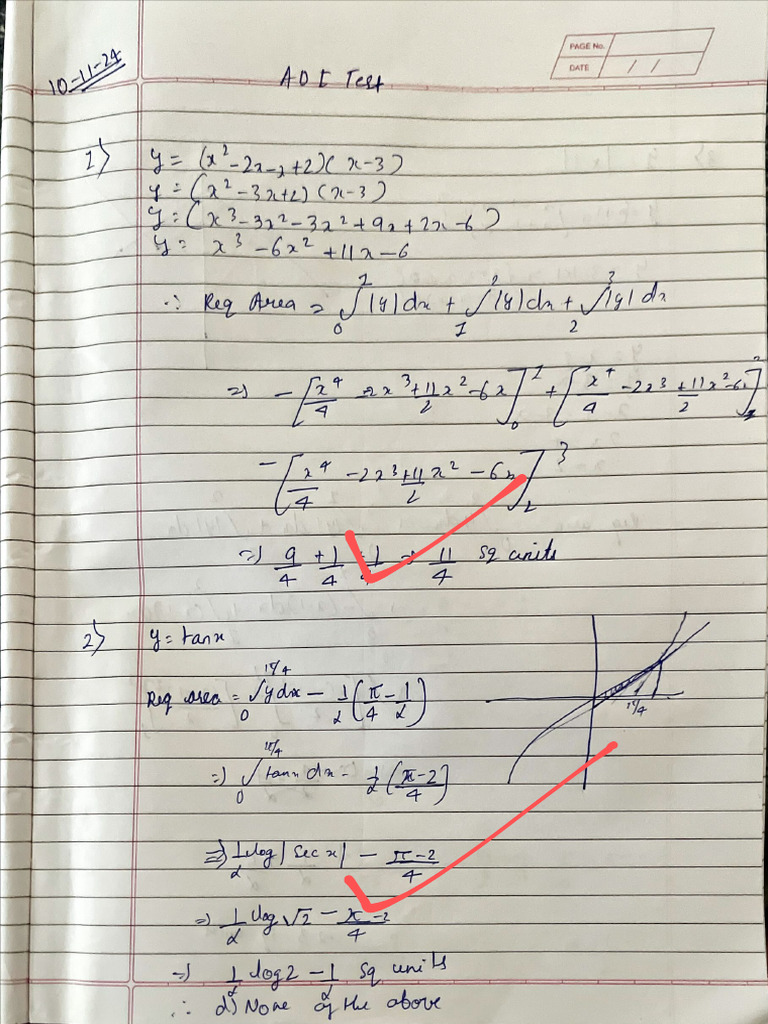 10-11-24
PAGE No.
DATE / /
AOI Test
1) y = (x² - 2x - x + 2)(x - 3)
y = (x² - 3x + 2)(x - 3)
y = (x³ - 3x² - 3x² + 9x + 2x - 6)
y = x³ - 6x² + 11x - 6
∴ Req Area = ₀∫¹ |y| dx + ₁∫² |y| dx + ₂∫³ |y| dx
=) - [x⁴/4 - 2x³ + 11/2 x² - 6x]₀¹ + [x⁴/4 - 2x³ + 11x²/2 - 6x]₁²
- [x⁴/4 - 2x³ + 11/2 x² - 6x]₂³
=) 9/4 + 1/4 + 1/4 → 11/4 sq units
2) y = tanx
Req Area = ₀∫^π/4 y dx - 1/2 (π/4 - 1/2)
π/4
=) ₀∫^π/4 tanx dx - 1/2 (π-2/4)
=) 1/2 log |sec x| - π-2/4
=) 1/2 log √2 - π-2
=) 1/2 log2 - 1/2 sq units
∴ d) None of the above